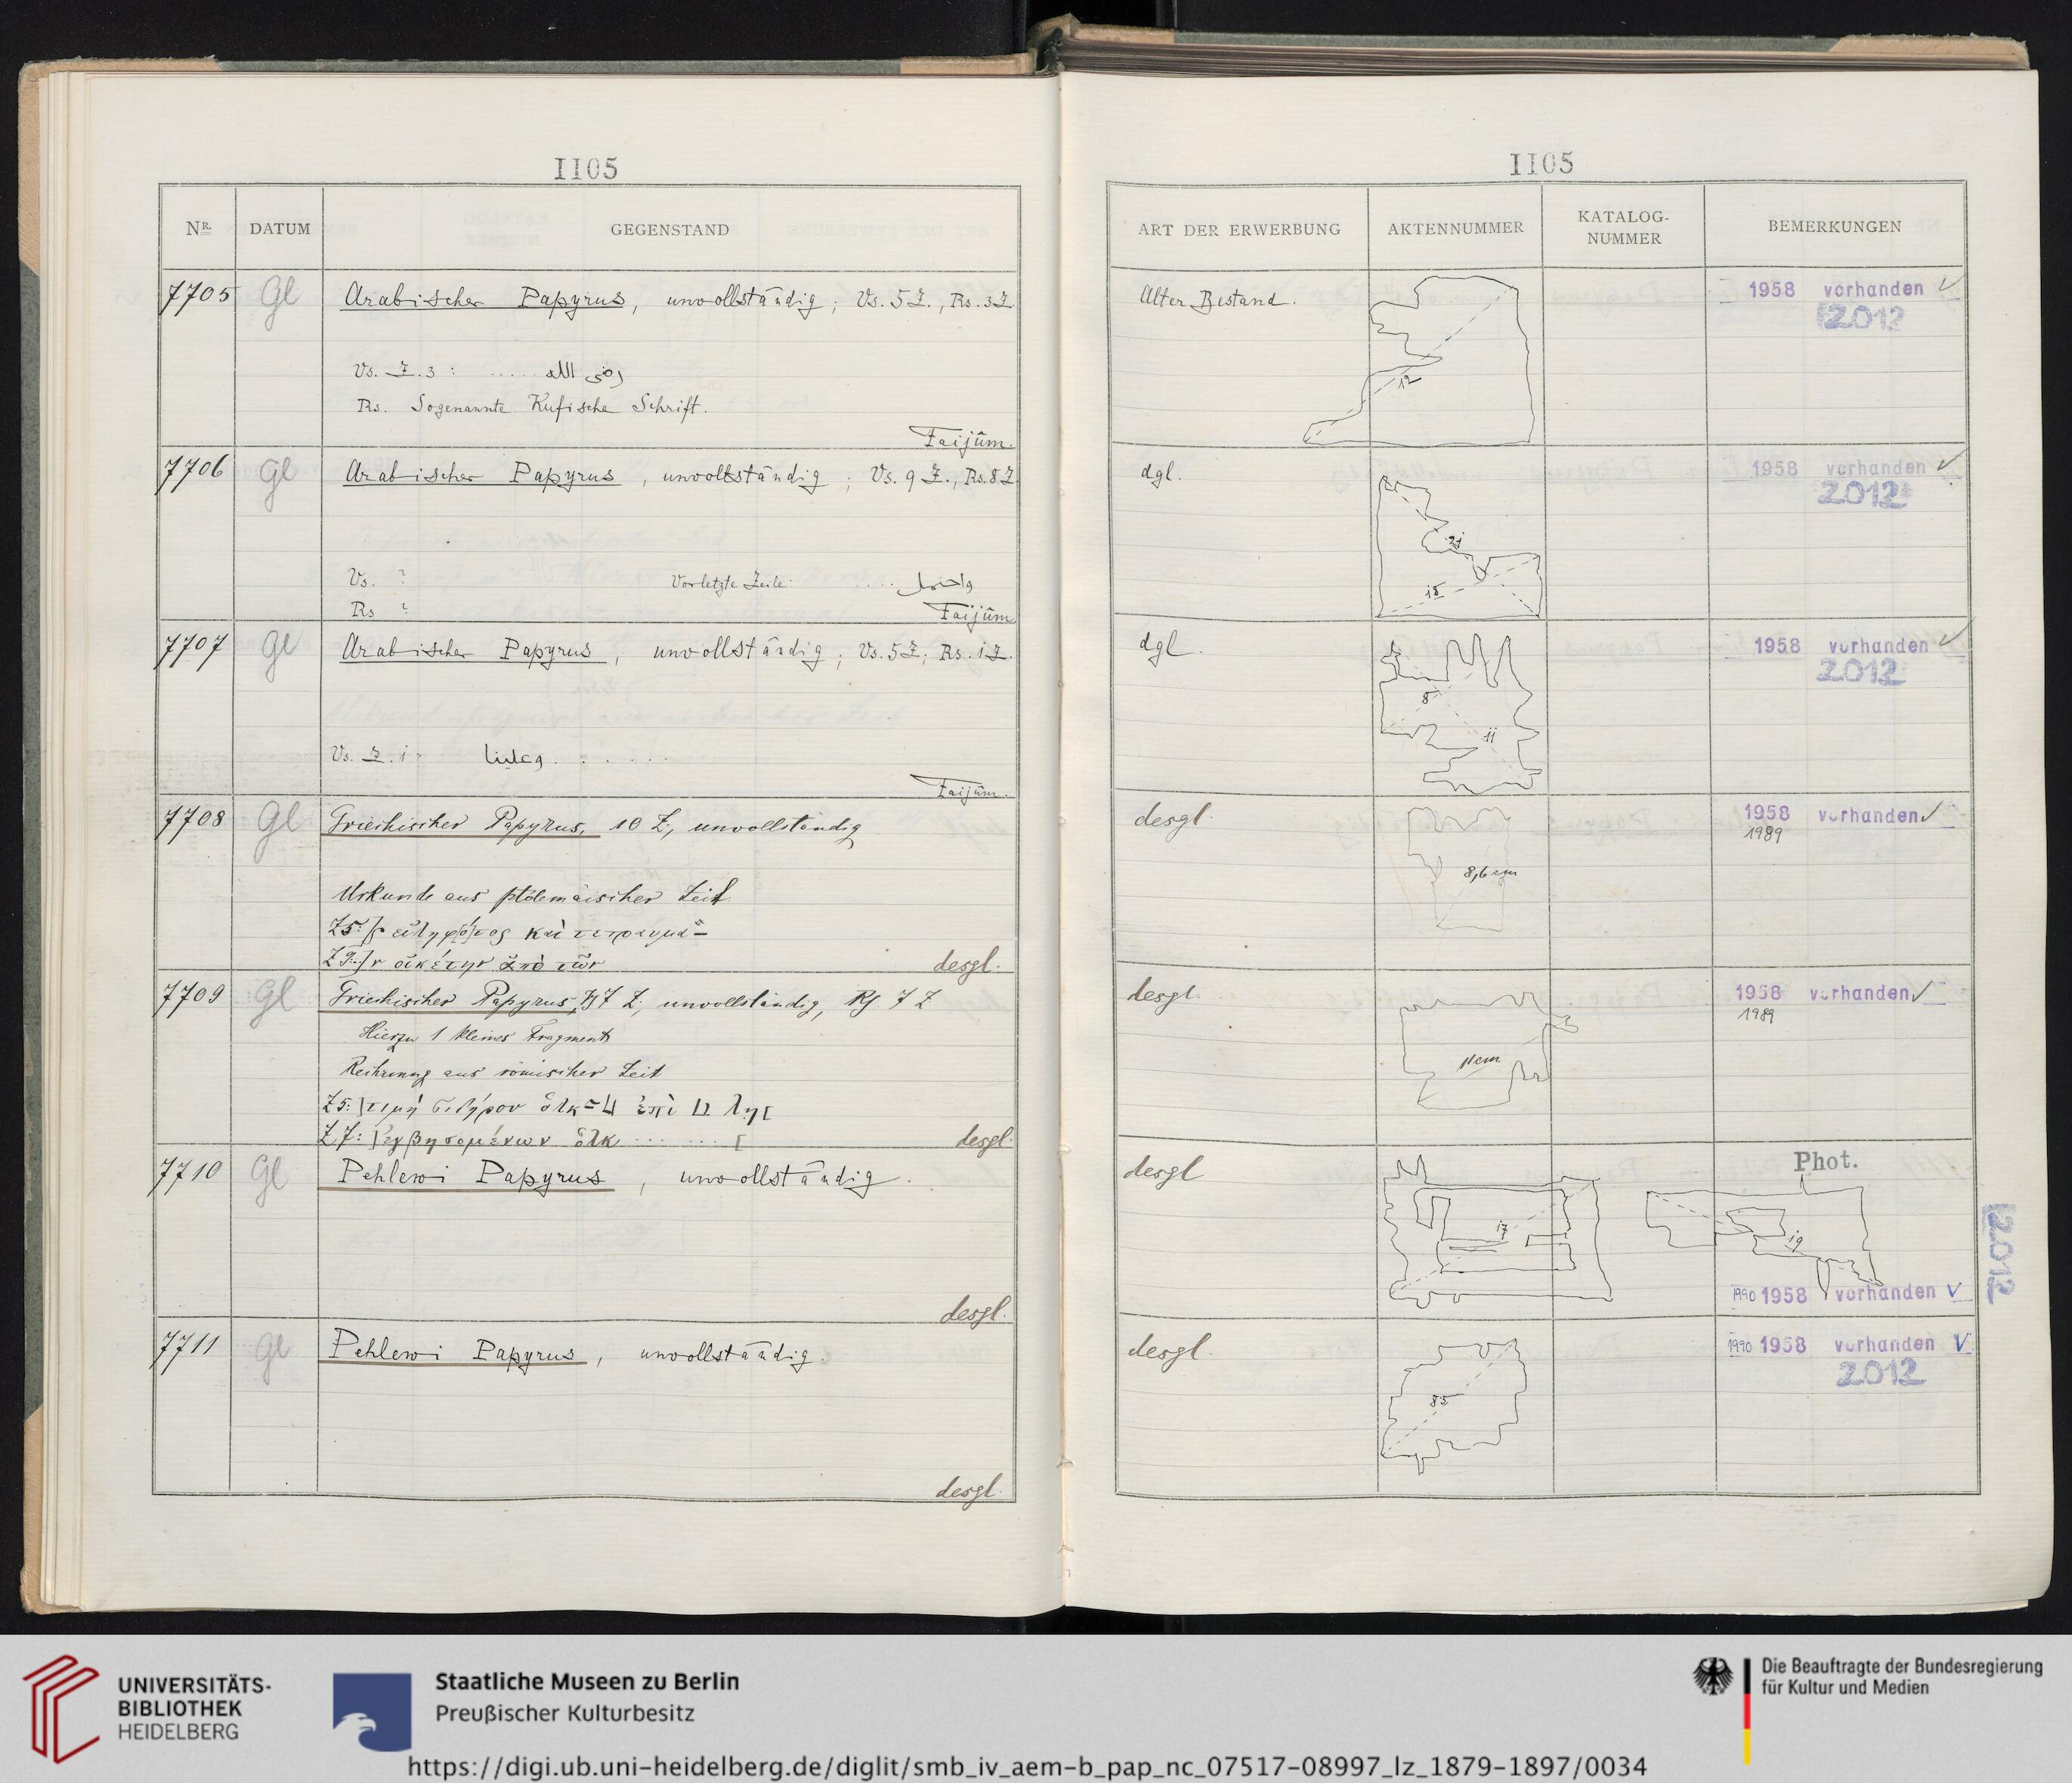 1105
1105
Nr. DATUM GEGENSTAND
ART DER ERWERBUNG AKTENNUMMER KATALOG-NUMMER BEMERKUNGEN
7705 Gl Arabischer Papyrus, unvollständig; Vs. 5 Z., Rs. 3 Z.
Vs. Z. 3: ..... رضى الله
Rs. Sogenannte Kufische Schrift.
Faijûm.
Alter Bestand.
12
1958 vorhanden ✓
2012
7706 Gl Arabischer Papyrus, unvollständig; Vs. 9 Z., Rs. 8 Z.
Vs. ? Vorletzte Zeile: ....
Rs ? Faijûm
dgl.
21
15
1958 vorhanden ✓
2012
7707 Gl Arabischer Papyrus, unvollständig; Vs. 5 Z; Rs. 1 Z.
Vs. Z. 1:
Faijûm.
dgl.
8
11
1958 vorhanden ✓
2012
7708 Gl Griechischer Papyrus, 10 Z., unvollständig
Urkunde aus ptolemäischer Zeit
Z 9: ]ν οἰκέτην ἀπὸ τῶν
desgl.
desgl.
8,6 cm
1958 vorhanden ✓
1989
7709 Gl Griechischer Papyrus, 7 Z., unvollständig, Rs. 7 Z
Hierzu 1 kleines Fragment
Rechnung aus römischer Zeit
Z 5: ]τιμὴ σιδήρου ὁλκ
desgl.
desgl.
11 cm
1958 vorhanden ✓
1989
7710 Gl Pehlewi Papyrus, unvollständig.
desgl.
desgl
17
Phot.
19
1990 1958 vorhanden ✓
2012
7711 Gl Pehlewi Papyrus, unvollständig.
desgl.
desgl.
85
1990 1958 vorhanden ✓
2012
UNIVERSITÄTS-
BIBLIOTHEK
HEIDELBERG
Staatliche Museen zu Berlin
Preußischer Kulturbesitz
Die Beauftragte der Bundesregierung
für Kultur und Medien
https://digi.ub.uni-heidelberg.de/diglit/smb_iv_aem-b_pap_nc_07517-08997_lz_1879-1897/0034